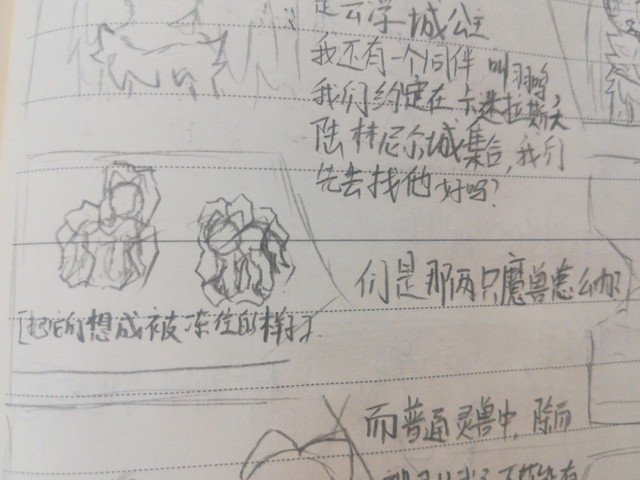 是云学城公主
我还有一个同伴叫羽鸣,
我们约定在卡迷拉斯大
陆林尼尔城集合,我们
先去找他好吗?
们是那两只魔兽怎么办?
[把它们想成被冻住的样子]
而普通灵兽中,除而